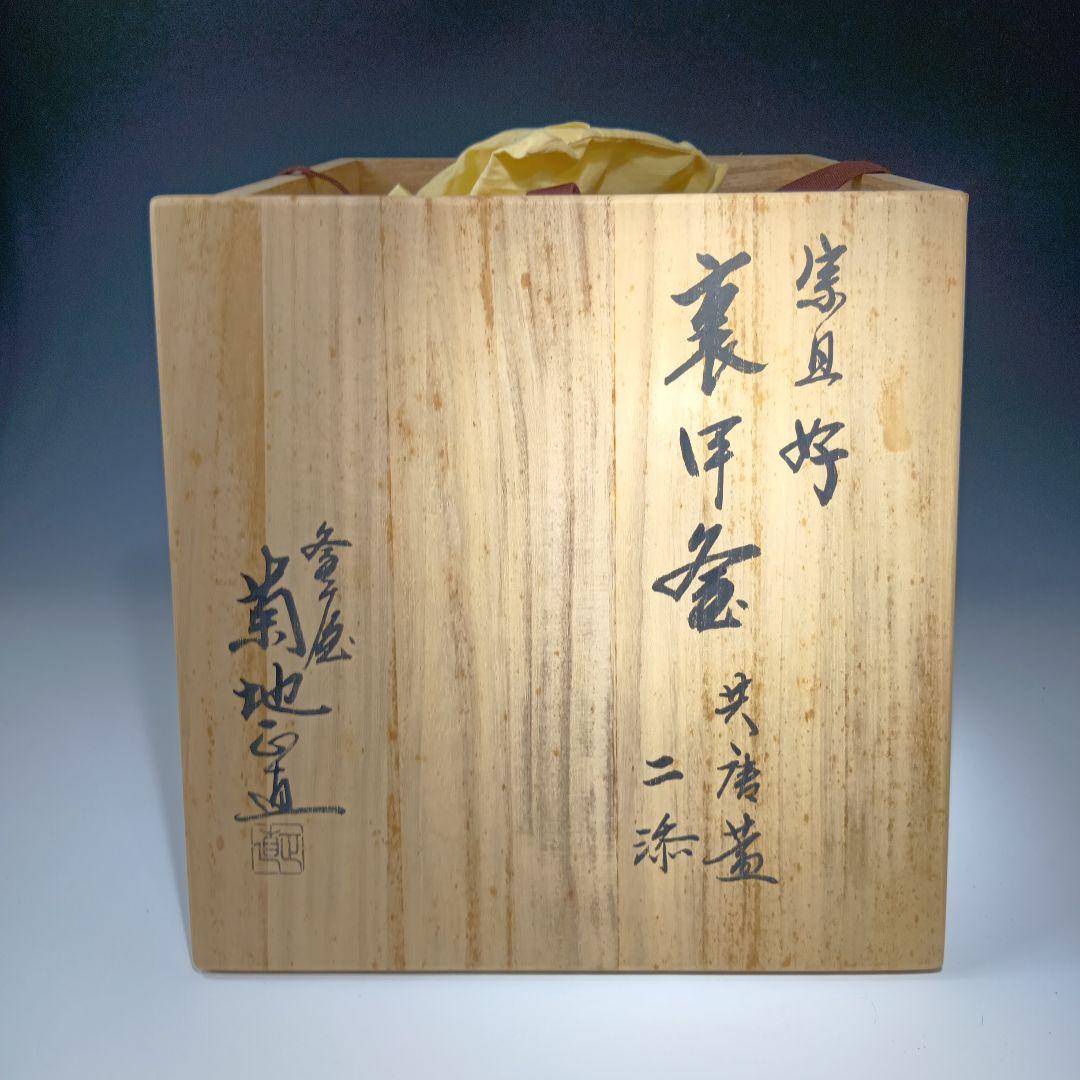 宗旦好
裏甲釜
共唐蓋
二添
釜屋
菊地正直
正直